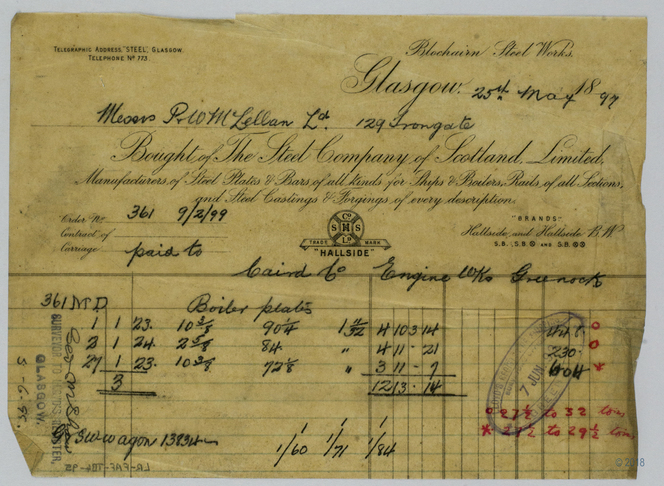 TELEGRAPHIC ADDRESS, "STEEL", GLASGOW.
TELEPHONE No 773.
Blochairn Steel Works.
Glasgow, 25th May 1897
Messrs P & W McLellan Ld 129 Trongate
Bought of The Steel Company of Scotland, Limited,
Manufacturers of Steel Plates & Bars of all kinds for Ships & Boilers, Rails of all Sections,
and Steel Castings & Forgings of every description.
Order No. 361 9/2/99
Contract of
Carriage paid to
Co
S H S
Ld
TRADE MARK
"HALLSIDE"
"BRANDS"
Hallside and Hallside B.W.
S.B. S.B AND S.B.
Caird & Co Engine Wks Greenock
361
Boiler plates
1 1 23. 10 3/8 90 1/4 1 11/32 4 10 3 14 448 o
2 1 24. 84 " 4 11 - 21 230 o
27 1 23. 10 3/8 72 1/8 " 3 11 - 7 *
3 12 13 - 14
SURVEYOR TO LLOYD'S REGISTER,
GLASGOW.
7 JUN
o 27 1/2 to 32 tons
* 27 1/2 to 29 1/2 tons
wagon 13834
1/60 1/71 1/84
LR-FAF-TD6-P5
© 2018